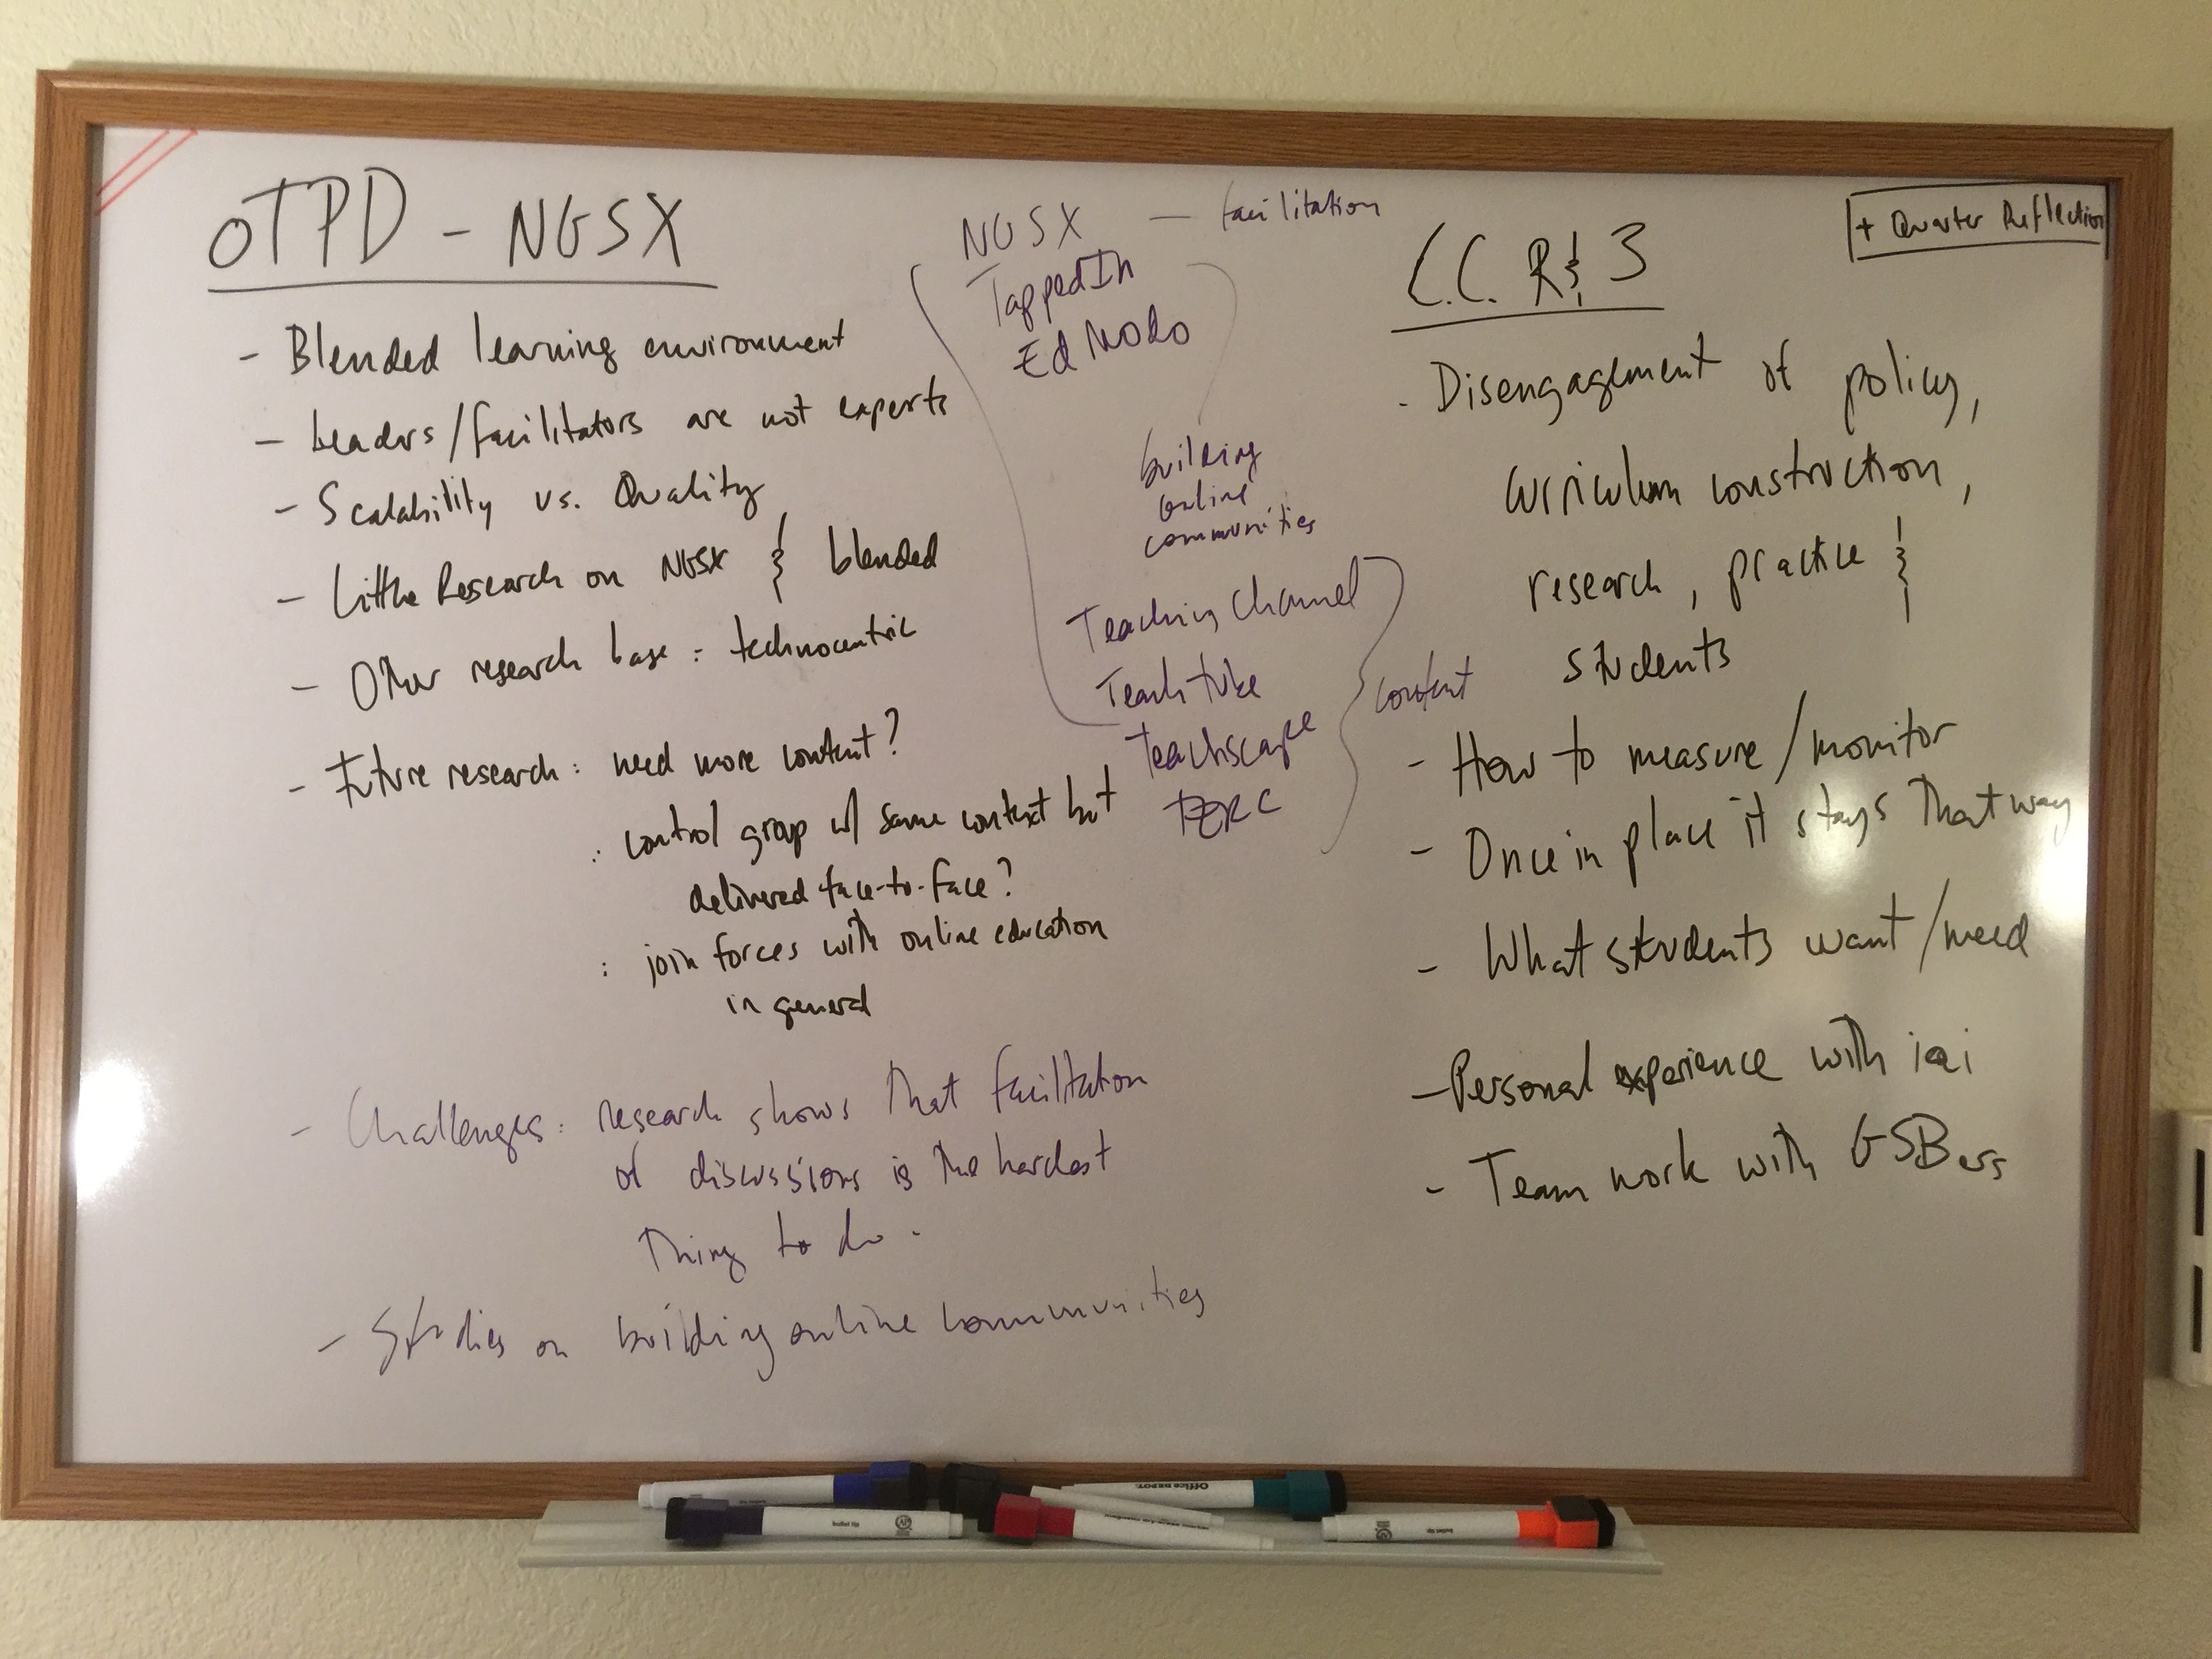 oTPD - NGSX
- Blended learning environment
- Leaders/facilitators are not experts
- Scalability vs. Quality
- Little Research on NGSX & blended
- Other research base : technocentric
- Future research : need more content?
: control group w/ same content but
delivered face-to-face?
: join forces with online education
in general
- Challenges : research shows that facilitation
of discussions is the hardest
thing to do.
- Studies on building online communities
NGSX - facilitation
TappedIn
Ed Modo
building
online
communities
Teaching Channel
Teachtube
Teachscape
TERC
content
+ Quarter Reflection
C.C. R& 3
- Disengagement of policy,
curriculum construction,
research, practice &
students
- How to measure/monitor
- Once in place it stays that way
- What students want/need
- Personal experience with iai
- Team work with GSBers
OFFICE DEPOT
bullet tip
AP
bullet tip